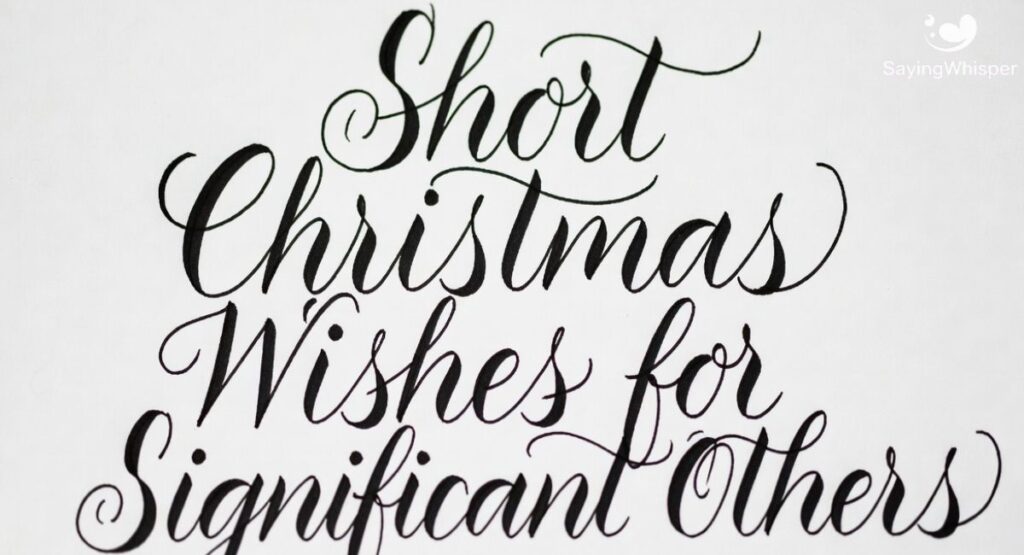 SayingWhisper
Short
Christmas
Wishes for
Significant Others